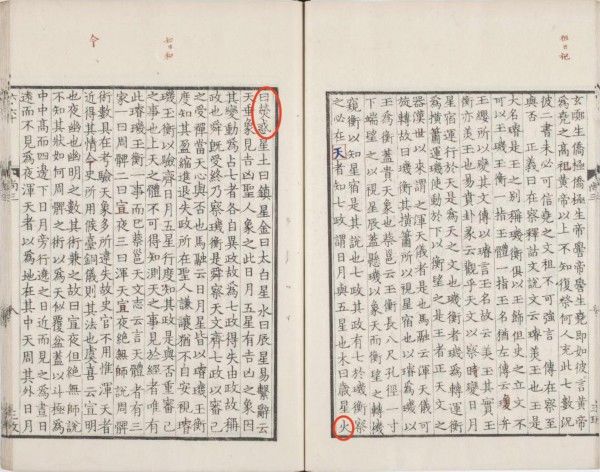 玄囂生僑極僑極生帝嚳帝嚳生堯即如彼言黄帝
為堯之高祖黄帝以上不知復祭何人充此七數況
彼二書未必可信堯之文祖不可強言 傳在察至
與否 正義曰在察釋詁文說文云璿美玉也玉是
大名璿是玉之別稱璣衡俱以玉飾但史之立文不
可以玉璣玉衡一指玉體一指玉名猶左傳云瓊弁
玉纓所以變其文傳以璿言玉名故云美玉其實玉
衡亦美玉也易賁卦彖云觀乎天文以察時變日月
星宿運行於天是為天之文也璣衡者璣為轉運衡
為横簫運璣使動於下以衡望之是王者正天文之
器漢世以來謂之渾天儀者是也馬融云渾天儀可
旋轉故曰璣衡其横簫所以視星宿也以璿為璣以
玉為衡蓋貴天象也蔡邕云玉衡長八尺孔徑一寸
下端望之以視星辰蓋懸璣以象天而衡望之轉璣
窺衡以知星宿是其說也七政其政有七於璣衡察
之必在天者知七政謂日月與五星也木曰歲星火
曰熒惑星土曰鎮星金曰太白星水曰辰星易繫辭云
天垂象見吉凶聖人象之此日月五星有吉凶之象因
其變動為占七者各自異政故為七政得失由政故稱
政也舜既受終乃察璣衡是舜察天文齊七政以審己
之受禪當天心與否也馬融云日月星皆以璿璣玉衡
度知其盈縮進退失政所在聖人謙讓猶不自安視璿
璣玉衡以驗齊日月五星行度知其政是與否重審己
之事也上天之體不可得知測天之事見於經者唯有
此璿璣玉衡一事而已蔡邕天文志云言天體者有三
家一曰周髀二曰宣夜三曰渾天宣夜絶無師說周髀
術數具在考驗天象多所違失故史官不用惟渾天者
近得其情今史所用候臺銅儀則其法也虞喜云宣明
也夜幽也幽明之數其術兼之故曰宣夜但絶無師說
不知其狀如何周髀之術以為天似覆盆蓋以斗極為
中中高而四邊下日月旁行遶之日近而見之為晝日
遠而不見為夜渾天者以為地在其中天周其外日月
令